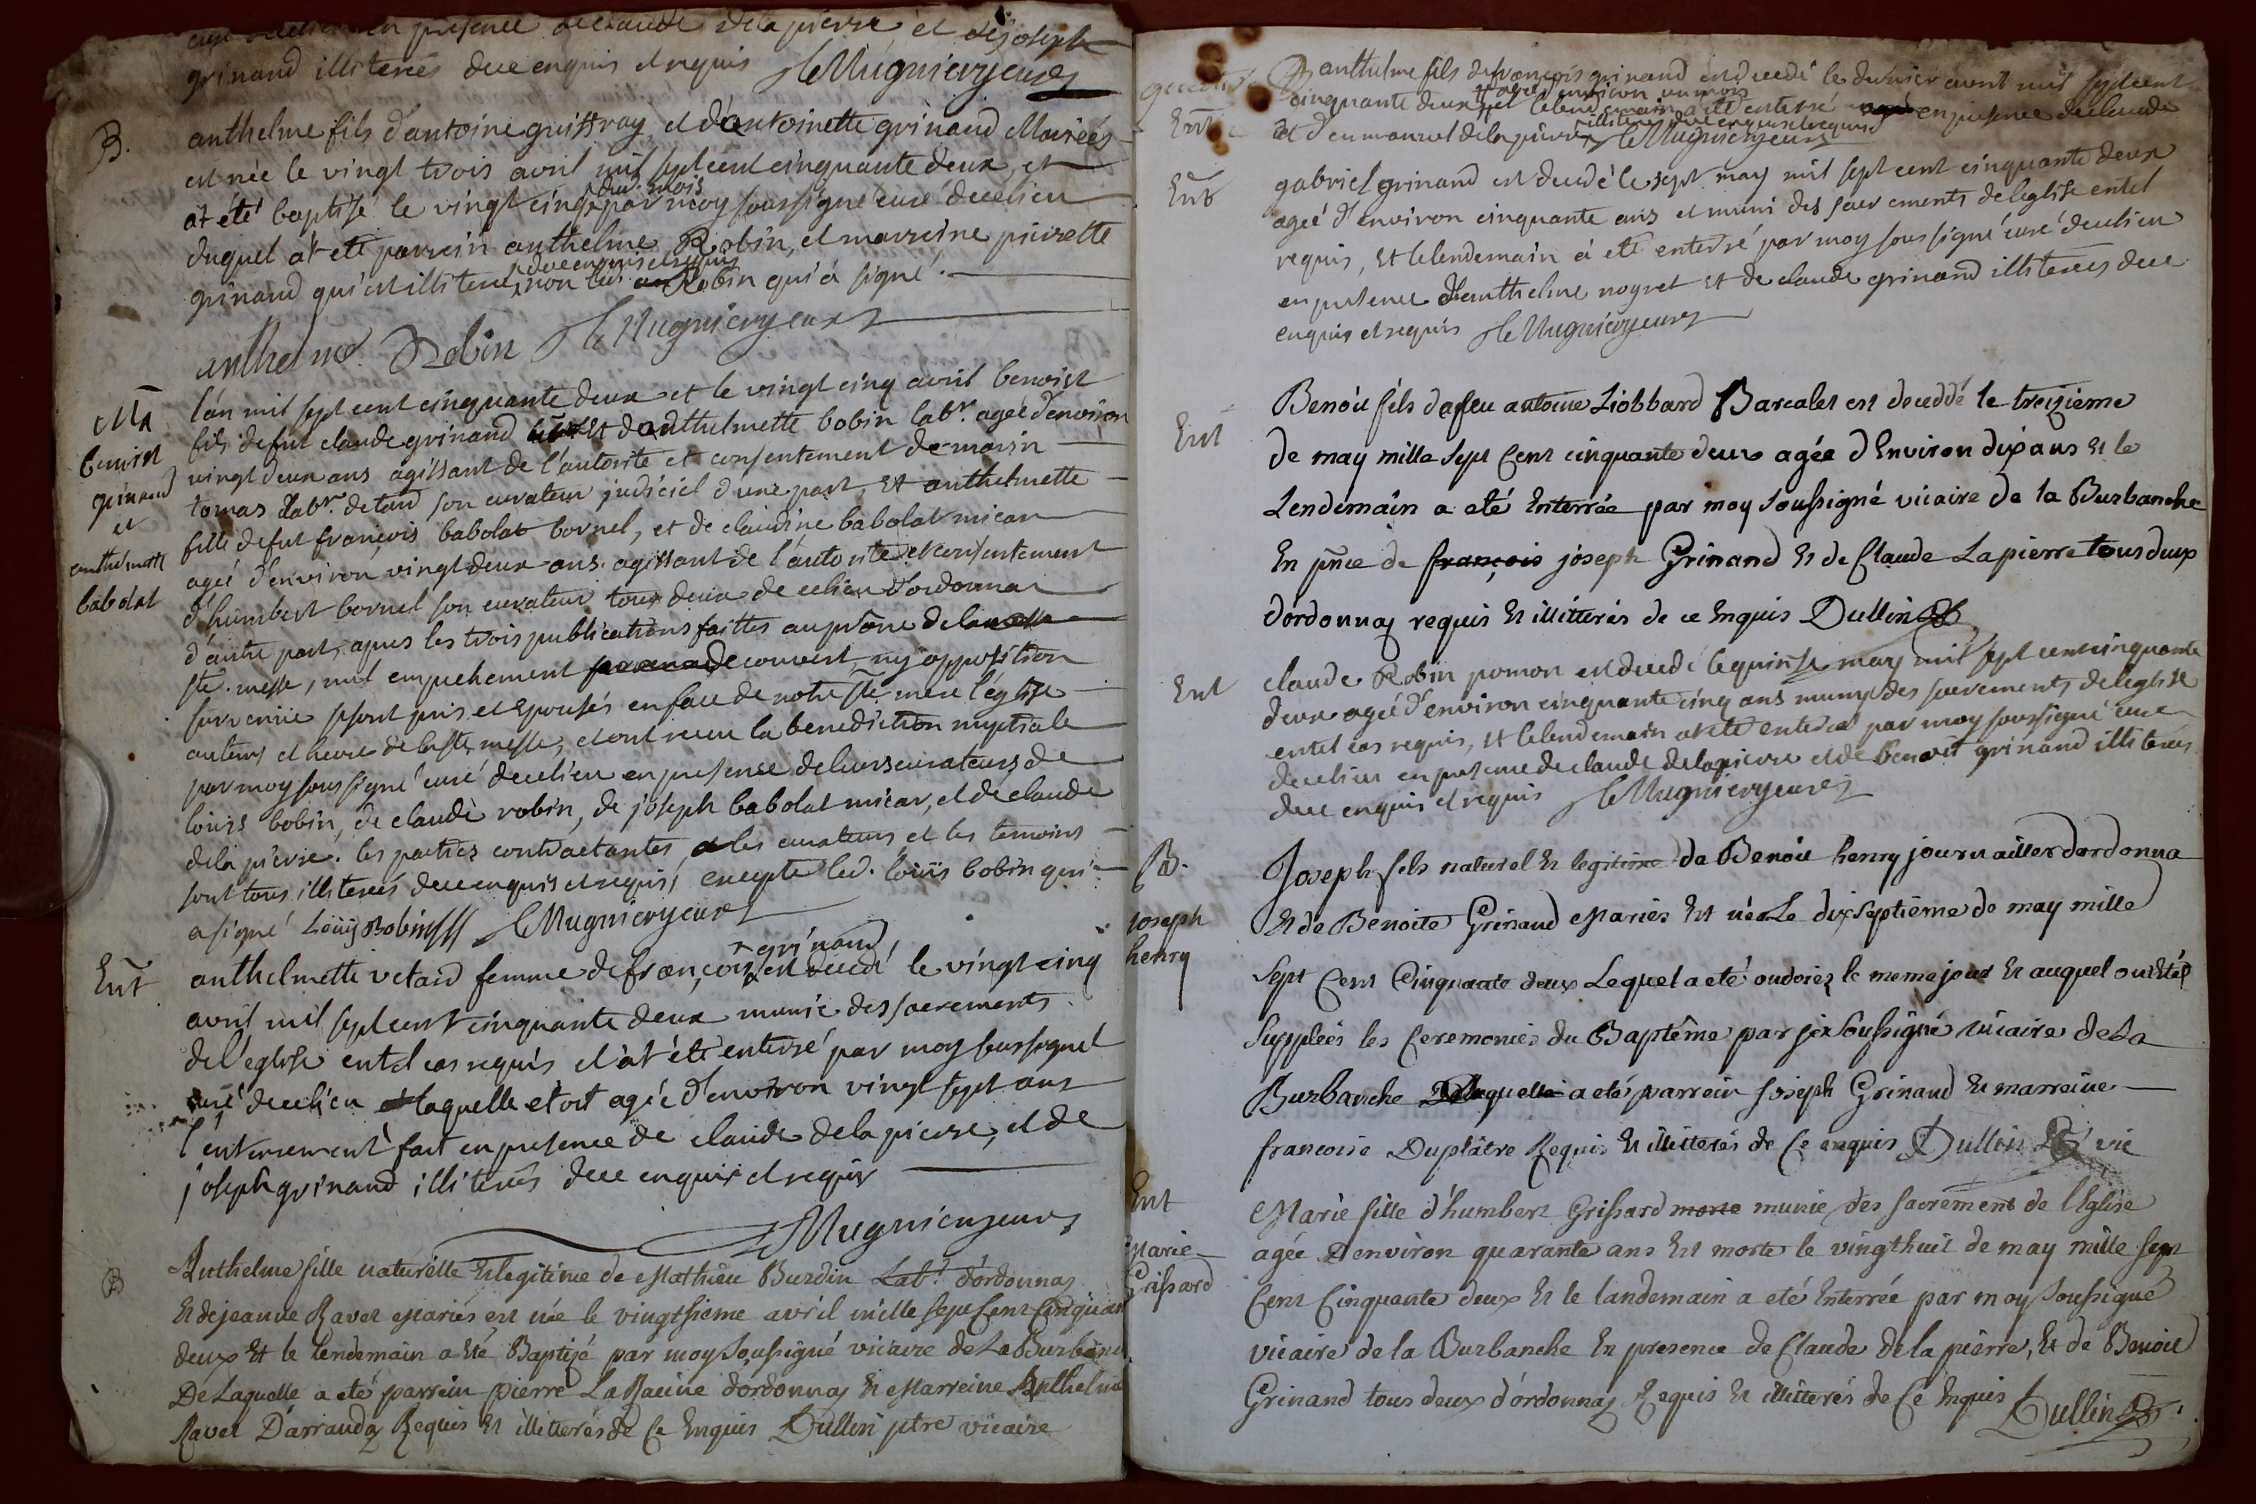 curé decelieu en presence de claude dela pierre et de joseph
grinand illiterés dece enquis et requis Mugnieryeures
B.
anthelme fils d'antoine guissray et d'antoinette grinand Mariées
est née le vingt trois avril mil sept cent cinquante deux, et
at été baptisé le vingt cinq du mois par moy soussigné curé decelieu
duquel at eté parrein anthelme Robin, et marreine pierrette
grinand qui est illiteree dece enquis et requis non led Robin qui à signé.
anthelme Robin Mugnieryeures
Ma
benoist
grinand
et
anthelmette
babolat
l'an mil sept cent cinquante deux et le vingt cinq avril benoist
fils defut claude grinand et d'anthelmette bobin labr. ageé d'environ
vingt deux ans agissant de l'autorité et consentement de marin
tomas labr. detard son curateur judiciel d'une part, et anthelmette
fille defut françois babolat bornel, et de claudine babolat micar
ageé d'environ vingt deux ans agissant de l'autorité et consentement
d'humbert bornel son curateur tous deux de celieu d'ordonnas
d'autre part, apres les trois publications faittes au prône dela
ste. messe, nul empechement decouvert, ny opposition
survenüe se sont pris et epousés en face de notre ste mere l'église
autems et heure de la ste messe, et ont receu la benediction nuptiale
par moy soussigné curé decelieu en presence deleurs curateurs de
loüis bobin, de claude robin, de joseph babolat micar, et de claude
dela pierre. les parties contractantes, les curateurs et les temoins
sont tous illiterés dece enquis et requis, excepte led. loüis bobin qui
a signé Loüis Bobin Mugnieryeures
Ent
anthelmette vetard femme de françois grinand est decedé le vingt cinq
avril mil sept cent cinquante deux munie des sacrements
de l'église entel cas requis et at été enterré par moy soussigné
curé decelieu laquelle etoit agée d'environ vingt sept ans
l'enterrement fait en presence de claude dela pierre, et de
joseph grinand illiterés dece enquis et requis
Mugnieryeures
B
Anthelme fille naturelle et legitime de Mathieu Burdin Labr. d'ordonnas
Et de jeanne Ravet Mariés est née le vingtsieme avril mille sept Cent Cinquan
deux Et le lendemain a été Baptizé par moy Soussigné vicaire de La Burban
De Laquelle a eté parrein pierre La Racine d'ordonnas et Marreine Anthelme
Ravet D'arrandas Requis et illitterés de Ce Enquis Dullin ptre vicaire
Ent
anthelme fils de françois grinand est decedé le dernier avril mil sept cent
cinquante deux agé d'environ un mois et le lendemain a été enterré en presence de claude
et d'emmanuel dela pierre illiterés dece enquis et requis Mugnieryeures
Ent
gabriel grinand est decedè le sept may mil sept cent cinquante deux
ageé d'environ cinquante ans et muni des sacrements de l'eglise entel
requis, et le lendemain à eté enterré par moy soussigné curé decelieu
en presence d'anthelme noyret et de claude grinand illiterés dece
enquis et requis Mugnieryeures
Ent
Benoit fils de feu antoine Liobbard Barcalet est deceddé le treizieme
de may mille Sept Cent cinquante deux agée d'Environ dix ans Et le
Lendemain a eté Enterrée par moy Soussigné vicaire de la Burbanche
En pnce de françois joseph Grinand Et de Claude Lapierre tous deux
dordonnas requis Et illitterés de ce Enquis Dullin
Ent
claude Robin pomon est decedé le quinse may mil sept cent cinquante
deux ageé d'environ cinquante cinq ans muny des sacrements de leglise
entel cas requis, et le lendemain at eté enterré par moy soussigné curé
decelieu en presence de claude dela pierre et de benoit grinand illiterés
dece enquis et requis Mugnieryeures
B.
joseph
henry
Joseph fils naturel et legitime de Benoit henry journailler dordonna
Et de Benoite Grinand Mariés Est née Le dix Septième de may mille
Sept Cent Cinquante deux Lequel a eté ondoiez le meme jour Et auquel on Etés
Suppleés les Ceremonies du Baptême par je Soussigné vicaire de La
Burbanche Delaquelle a etés parrein joseph Grinand Et marreine
francoise Duplâtre Requis Et illitterés de Ce enquis Dullin vic
Ent
Marie
Grissard
Marie fille d'humbert Grissard morte munie des sacrement de l'Eglise
agée D'environ quarante ans Est morte le vingthuit de may mille sept
Cent Cinquante deux Et le landemain a eté Enterrée par moy Soussigné
vicaire de la Burbanche En presence de Claude de la pierre, Et de Benoit
Grinand tous deux d'ordonnas Requis Et illitterés de Ce Enquis Dullin